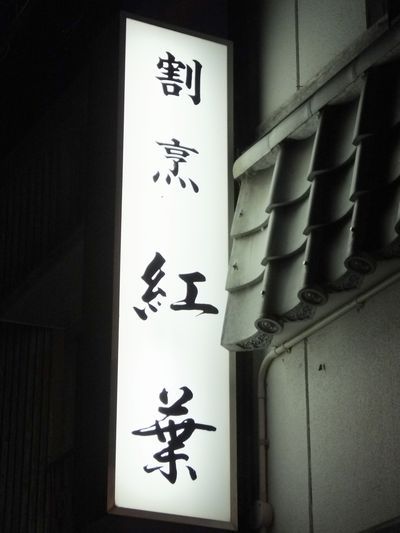 割烹紅葉